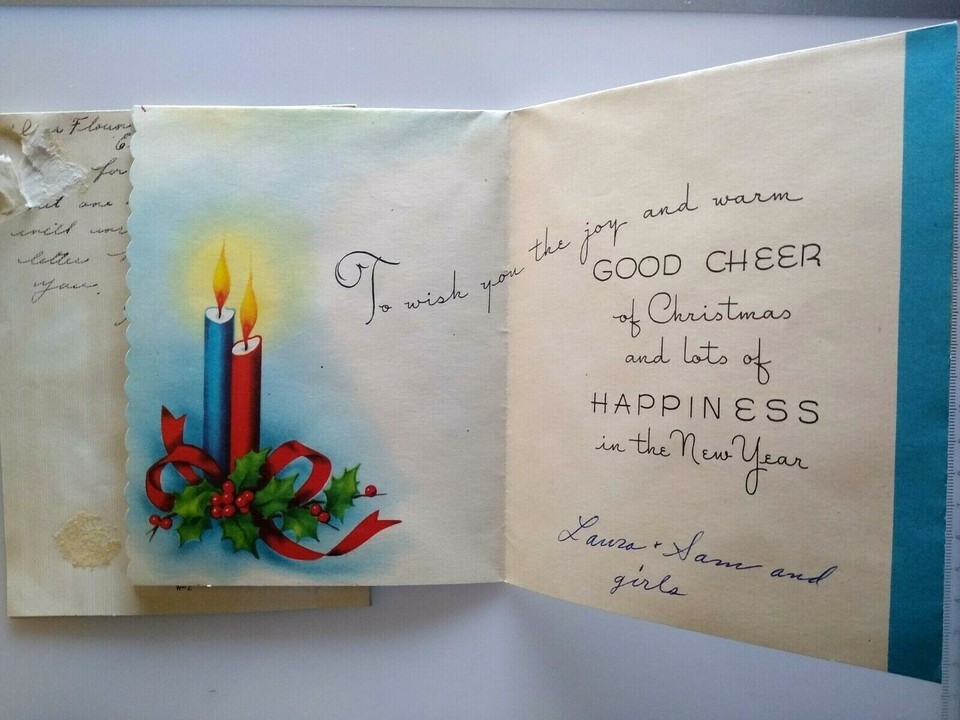 Flour
for
one
will
letter
you.
To wish you the joy and warm
GOOD CHEER
of Christmas
and lots of
HAPPINESS
in the New Year
Laura + Sam and
girls